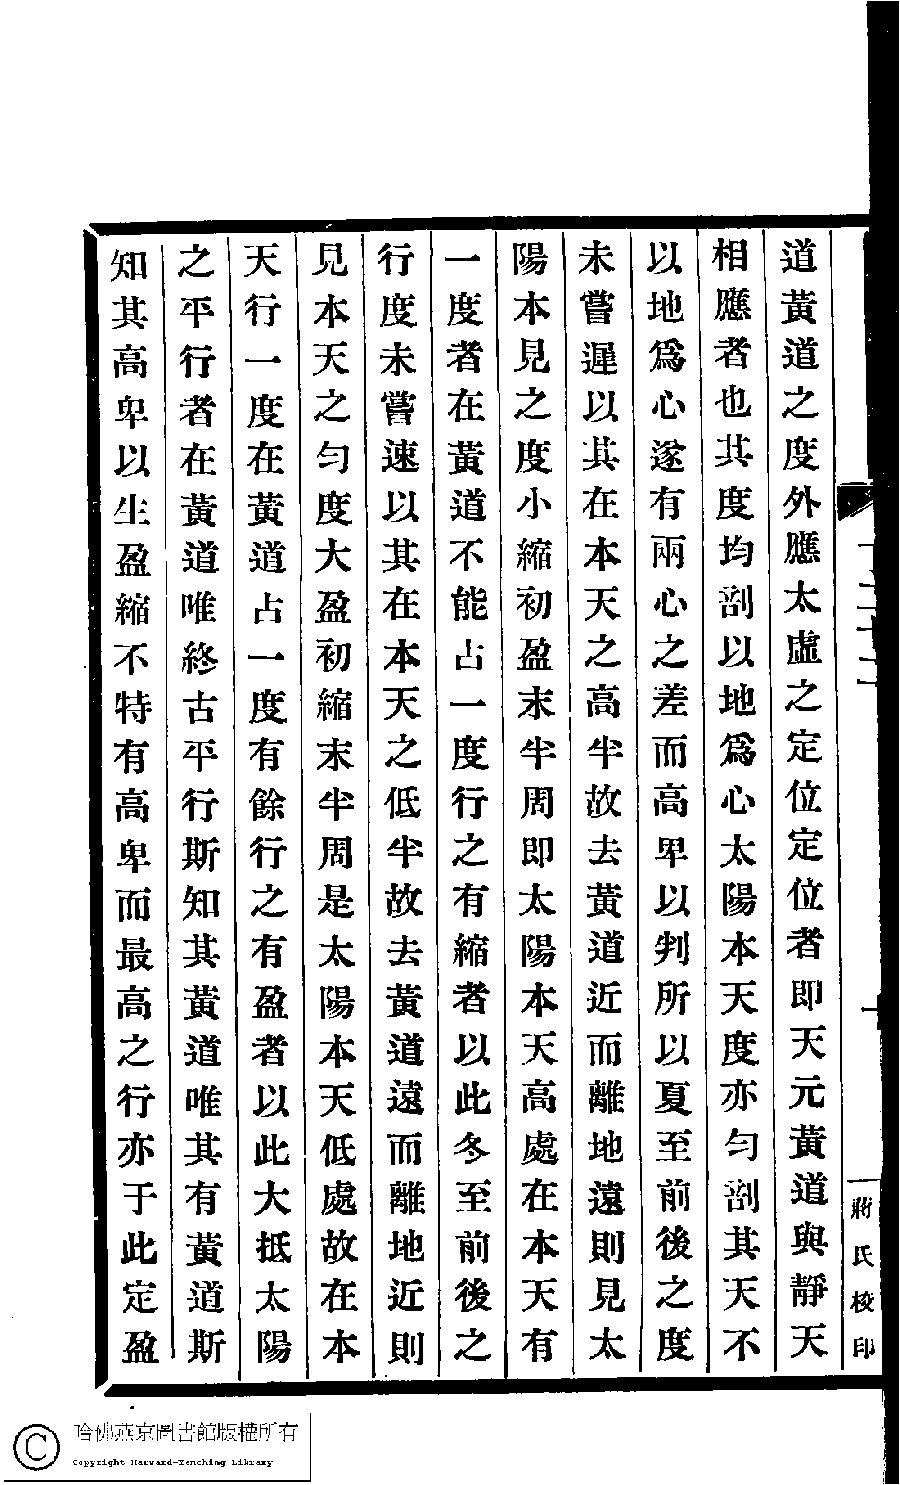 道黃道之度外應太虛之定位定位者即天元黃道與靜天
相應者也其度均剖以地爲心太陽本天度亦勻剖其天不
以地爲心遂有兩心之差而高卑以判所以夏至前後之度
未嘗遲以其在本天之高半故去黃道近而離地遠則見太
陽本見之度小縮初盈末半周即太陽本天高處在本天有
一度者在黃道不能占一度行之有縮者以此冬至前後之
行度未嘗速以其在本天之低半故去黃道遠而離地近則
見本天之勻度大盈初縮末半周是太陽本天低處故在本
天行一度在黃道占一度有餘行之有盈者以此大抵太陽
之平行者在黃道唯終古平行斯知其黃道唯其有黃道斯
知其高卑以生盈縮不特有高卑而最高之行亦于此定盈
蔣氏校印
哈佛燕京圖書館版權所有
Copyright Harvard-Yenching Library